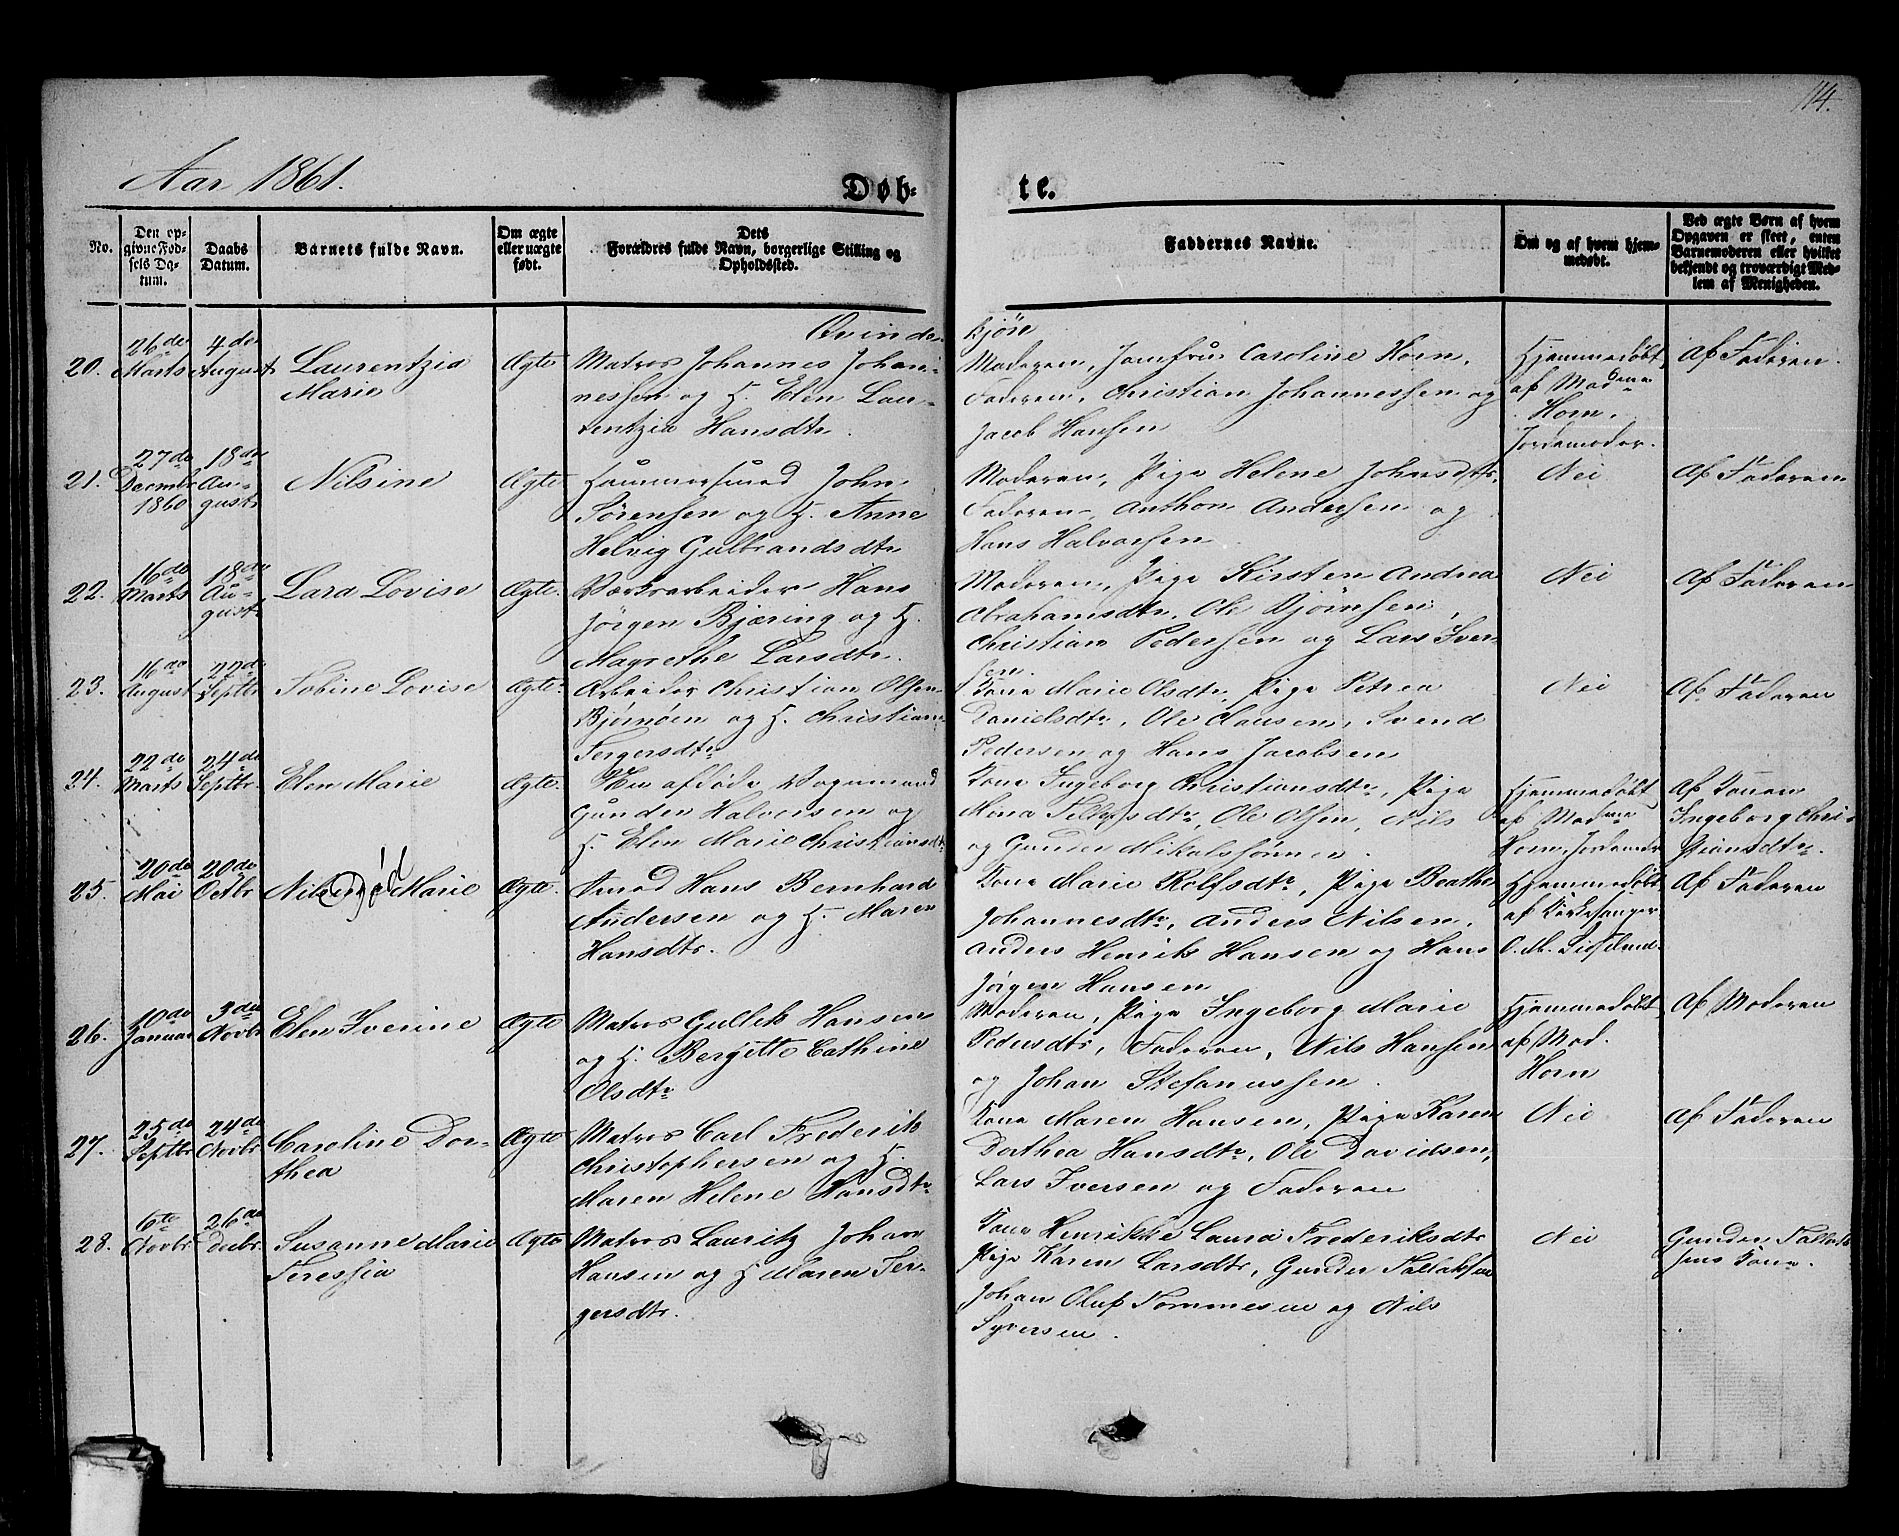 114.
Aar 1861.
Døb-
te.
No.
Den op-
givne Fød-
sels Da-
tum.
Daabs
Datum.
Barnets fulde Navn.
Om ægte
eller uægte
født.
Dets
Forældres fulde Navn, borgerlige Stilling og
Opholdssted.
Faddernes Navne.
Om og af hvem hjem-
medøbt.
Ved ægte Børn af hvem
Opgaven er skeet, enten
Barnemoderen eller hvilket
bekjendt og troværdigt Med-
lem af Menigheden.
Qvinde-
kjøn
20.
26de
Marts
4de
August
Laurentzia
Marie
Ægte
Matros Johannes Johan-
nessen og H. Elen Lau-
rentzia Hansdtr.
Moderen, Jomfru Caroline Horn,
Faderen, Christian Johannessen og
Jacob Hansen
Hjemmedøbt
af Madame
Horn,
Jordemoder.
Af Faderen.
21.
27de
Decmbr
1860
18de
Au-
gust
Nilsine
Ægte
Hammersmed John
Sørensen og H. Anne
Helvig Gulbrandsdtr
Moderen, Pige Helene Johnsdtr,
Faderen, Anthon Andersen og
Hans Halvorsen
Nei
Af Faderen
22.
16de
Marts
18de
Au-
gust
Lara Lovise
Ægte.
Værksarbeider Hans
Jørgen Bjæring og H.
Magrethe Larsdtr.
Moderen, Pige Kirsten Andrea
Abrahamsdtr, Ole Bjørnsen,
Christian Pedersen og Lars Iver-
sen.
Nei
Af Faderen
23.
16de
August
22de
Septbr
Sobine Lovise
Ægte
Arbeider Christian Olsen
Bjørnøen og H. Christiane
Tergersdtr
Kone Marie Olsdtr, Pige Petrea
Danielsdtr, Ole Clausen, Svend
Pedersen og Hans Jacobsen
Nei
Af Faderen
24.
22de
Marts
24de
Septbr.
Elen Marie
Ægte.
Nu afdøde Vognmand
Gunder Halvorsen og
H. Elen Marie Christiansdtr
Kone Ingeborg Christiansdtr, Pige
Mona Tellefsdtr, Ole Olsen, Nils
og Gunder Mikalsønner.
Hjemmedøbt
af Madme
Horn, Jordemoder
Af Konen
Ingeborg Chri-
stiansdtr.
25.
20de
Mai
20de
Octbr
Nilse Marie
Død
Ægte.
Smed Hans Bernhard
Andersen og H. Maren
Hansdtr.
Kone Marie Rolfsdtr, Pige Beathe
Johannesdtr, Anders Nilsen,
Anders Henrik Hansen og Hans
Jørgen Hansen
Hjemmedøbt
af Kirkesanger
Af Faderen
26.
10de
Januar
3die
Novbr
Elen Iverine
Ægte
Matros Gullik Hansen
og H. Bergitte Cathine
Olsdtr
Moderen, Pige Ingeborg Marie
Pedersdtr, Faderen, Nils Hansen
og Johan Stefanussen.
Hjemmedøbt
af Mad.
Horn
Af Moderen
27.
25de
Septbr
24de
Novbr
Caroline Dor-
thea
Ægte
Matros Carl Frederik
Christophersen og H.
Maren Helene Hansdtr
Kone Maren Hansen, Pige Karen
Dorthea Hansdtr, Ole Davidsen,
Lars Iversen og Faderen
Nei
Af Faderen
28.
6te
Novbr
26de
Decbr
Susanne Marie
Teressia
Ægte
Matros Lauritz Johan
Hansen og H. Maren Ter-
gersdtr.
Kone Henrikke Laura Frederiksdtr
Pige Karen Larsdtr, Gunder Tallaksen
Johan Oluf Tommesen og Nils
Syversen.
Nei
Gunder Tallak-
sens Kone.